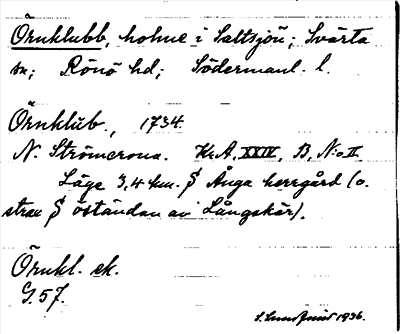 Örnklubb, holme i Saltsjön; Svärta
sn; Rönö hd; Södermanl. l.
Örnklub, 1734.
N. Strömcrona. Kr.A, XXIV, B, N:o II
Läge 3,4 km. S Ånga herrgård (o.
strax S öständan av Långskär).
Örnkl. ek.
G.57.
1936.